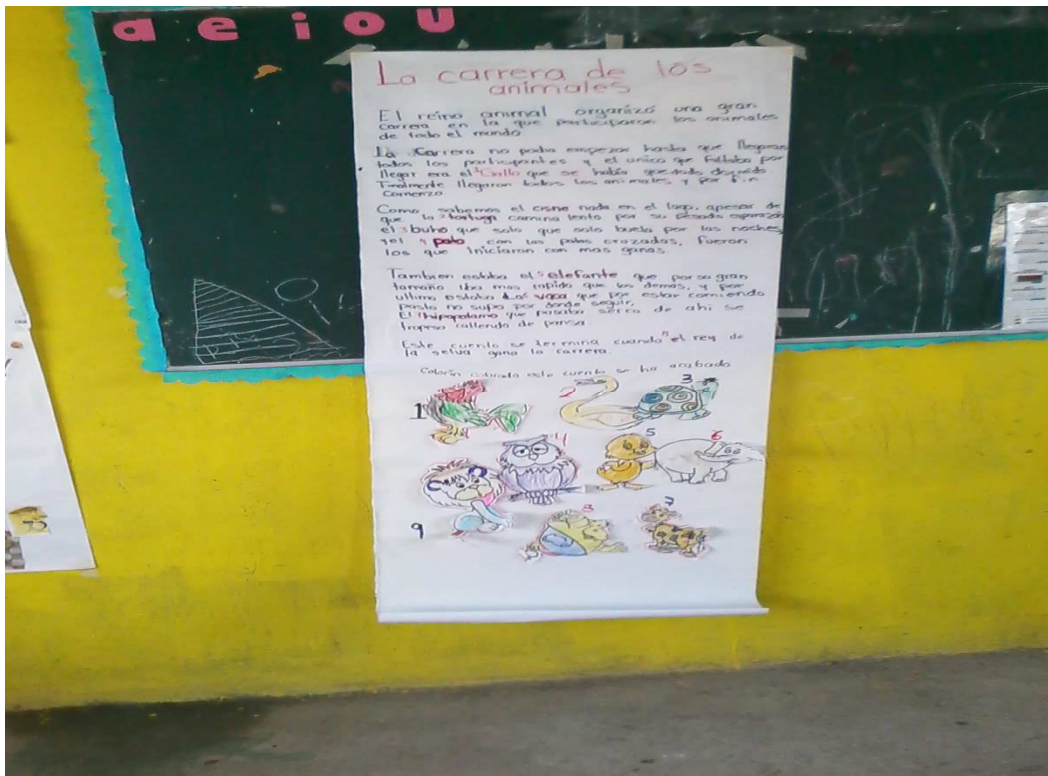 a e i o U
La carrera de los
animales
El reino animal organizó una gran
carrera en la que participaron los animales
de todo el mundo
La Carrera no podia empezar hasta que llegaran
todos los participantes y el unico que faltaba por
llegar era el Gallo que se había quedado dormido
Finalmente llegaron todos los animales y por fin
comenzo
Como sabemos el cisne nada en el lago, apesar de
que la tortuga camina lento por su pesado caparazon
el buho que solo que solo buela por las noches
y el pato con las patas cruzadas, fueron
los que iniciaron con mas ganas.
Tambien estaba el elefante que por su gran
tamaño iba mas rapido que los demas, y por
ultimo estaba La vaca que por estar comiendo
pasto no supo por donde seguir,
El hipopotamo que pasaba serca de ahi se
tropeso callendo de pansa.
Este cuento se termina cuando el rey de
la selva gana la carrera.
Colorin colorado este cuento se ha acabado
1 2 3
4 5 6
9 8 7